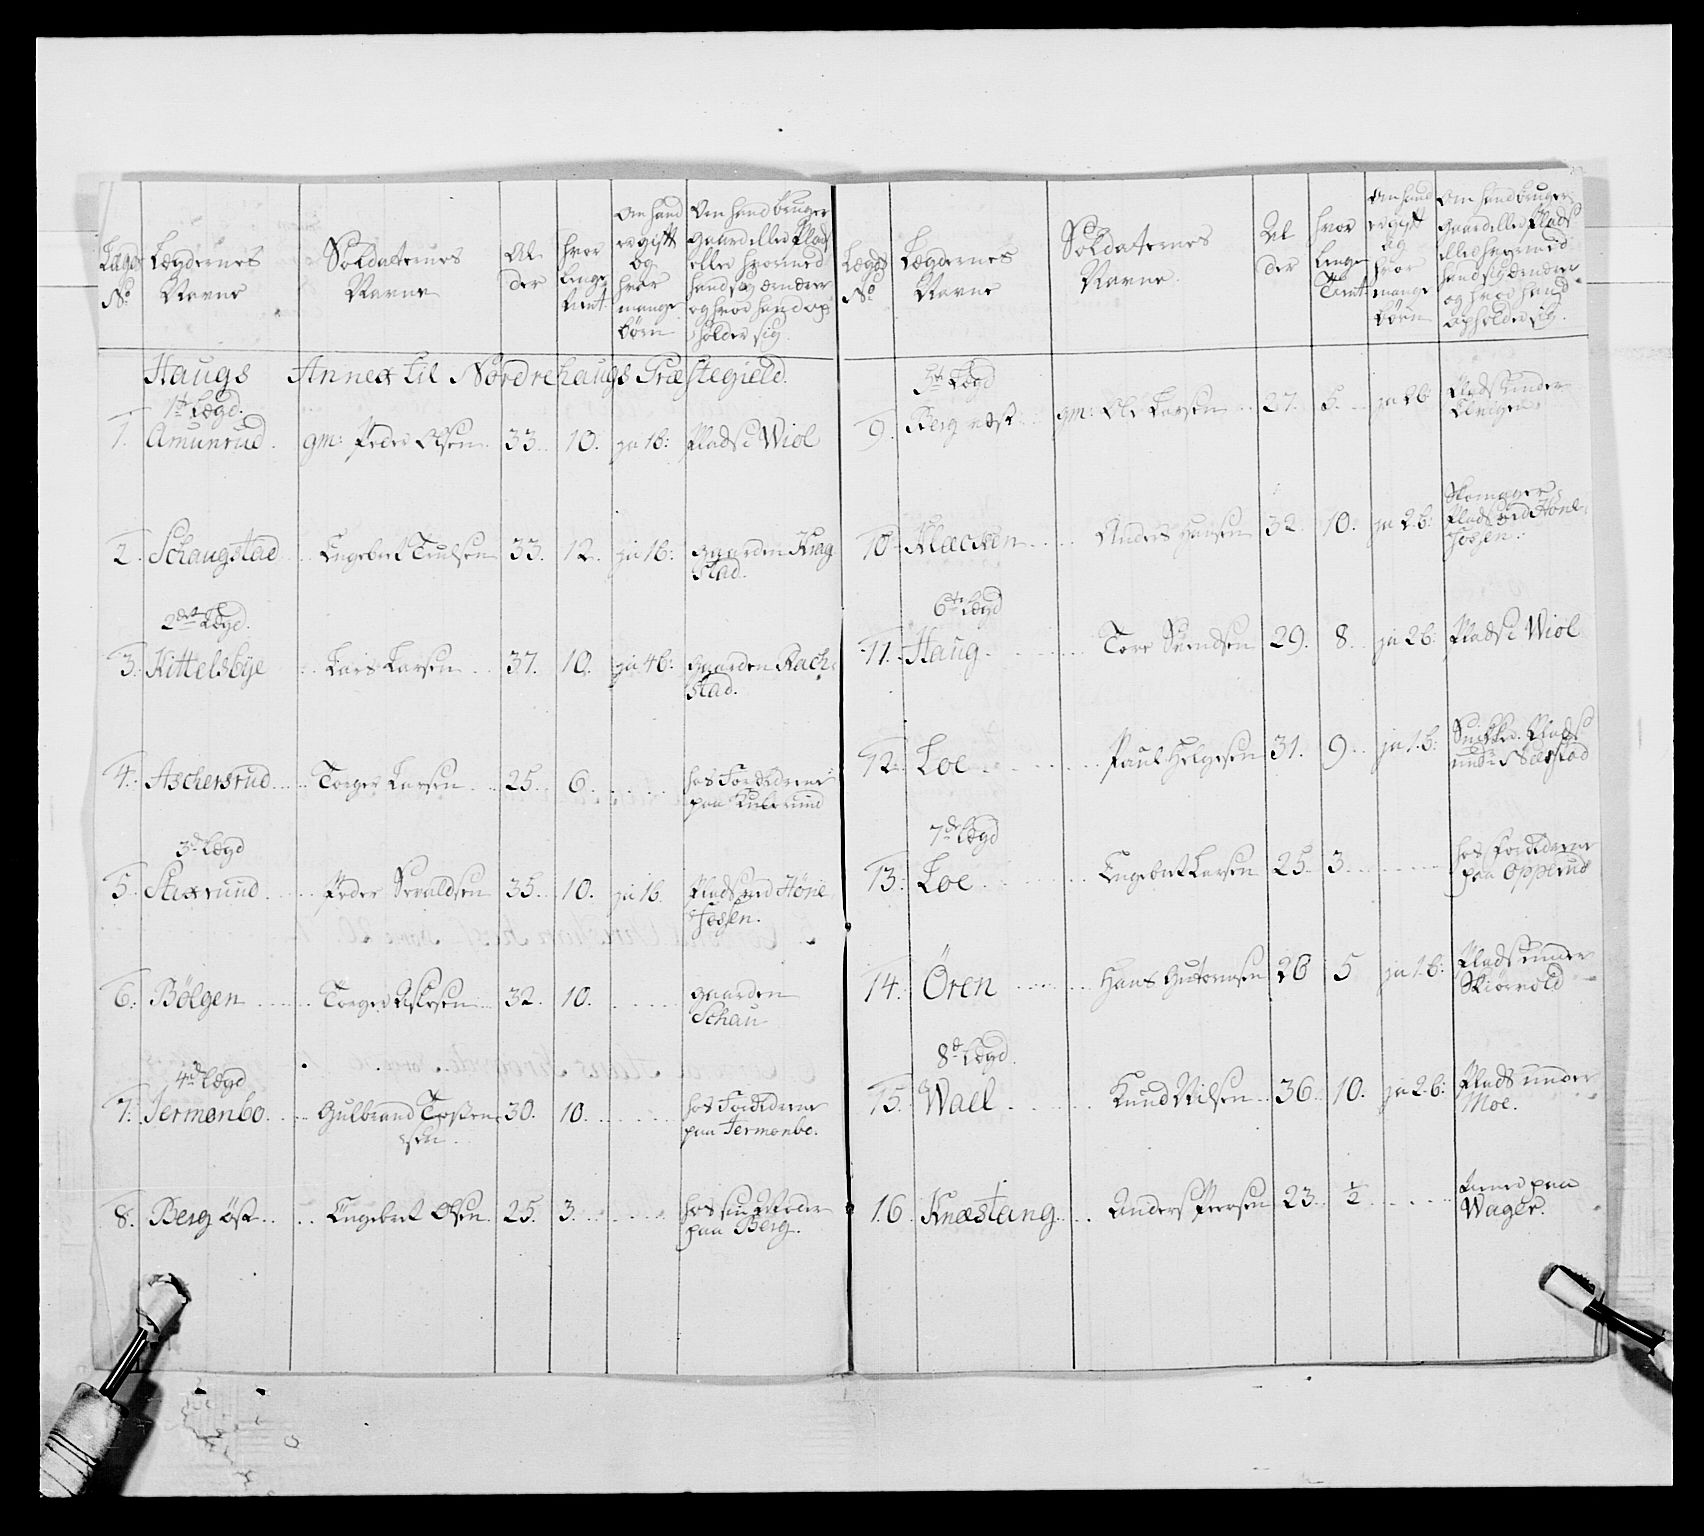 Lægds No
Lægdernes Navne
Soldaternes Navne
Al der
hvor lenge tient
Om hand er gift og hvor mange börn
Om hand bruger gaard eller Plads eller hvormed hand sig ernærer og hvor hand op holder sig
Haugs Annex til Nordrehaugs Præstegield.
1te Lægd.
1. Amunrud. gm: Peder Olsen 33. 10. ja 1b: Plads i Wiol
2. Schaugstad Engebret Truls̄en 33. 12. ja 1b: gaarden Krag
stad.
2det Lægd.
3. Kittelsbye Lars Larsen 37. 10. ja 4b: gaarden Rach:
stad.
4. Aschersrud Torger Larsen 25. 6. hos Forældrene
paa
3de Lægd
5. Staxrund Peder Sevaldsen 35. 10. ja 1b. Plads ved Höne
Fossen.
6. Bölgen Torger 32. 10. gaarden
Schau
4de Lægd
7. Jermonbo Gulbrand Tosten 30. 10. hos Forældrene
sen. paa Jermonbo.
8. Berg öst Engebret Olsen 25. 3. hos sin Moder
paa Berg.
Lægds No
Lægdernes Navne
Soldaternes Navne.
Al der
hvor lenge Tient
Om hand er gift og hvor mange börn
Om hand bruger gaard eller Plads eller hvormed hand sig ernærer og hvor hand opholder sig.
5te Lægd
9. Berg vest gm: Ole Larsen 27. 5. ja 2b Plads under
10. Klæcken Anders Hansen 32. 10. ja 2b: Skomager
Plads ved Höne:
Fossen.
6te Lægd
11. Haug Tore 29. 8 ja 2b: Plads i Wiol
12. Loe Paul Helgesen 31. 9 ja 1.b: Plads
under
7de Lægd
13. Loe Engebret Larsen 25. 3. hos Forældrene
paa Opperud
14. Ören Hans Guttormsen 26 5 ja 1.b: Plads under
Skiörvold
8de Lægd.
15. Wael Knud Nilsen 36. 10. ja 2b: Plads under
Moe.
16. Knæstang Anders Persen 23. ½ paa
Wager.